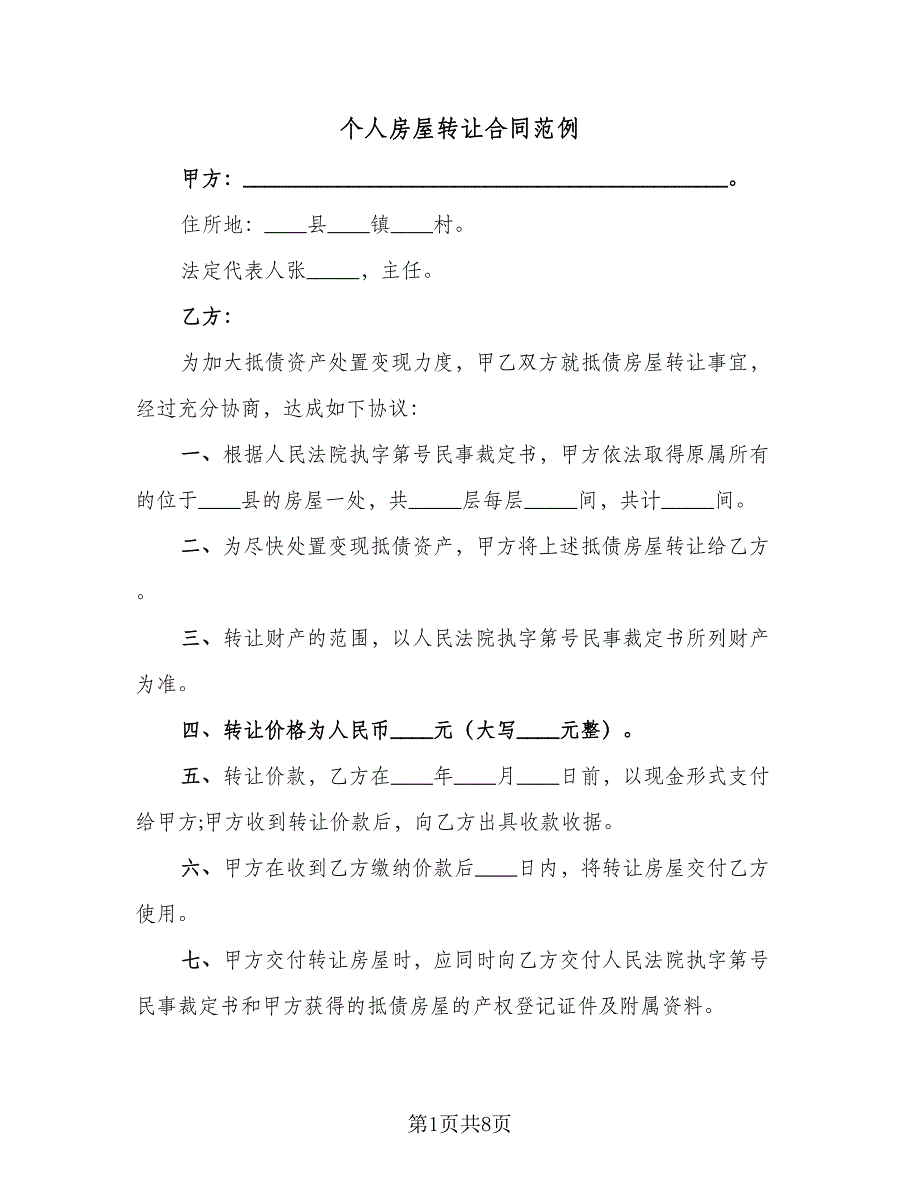 个人房屋转让合同范例
甲方：______________________________________________。
住所地：____县____镇____村。
法定代表人张_____，主任。
乙方：
为加大抵债资产处置变现力度，甲乙双方就抵债房屋转让事宜，
经过充分协商，达成如下协议：
一、根据人民法院执字第号民事裁定书，甲方依法取得原属所有
的位于____县的房屋一处，共_____层每层_____间，共计_____间。
二、为尽快处置变现抵债资产，甲方将上述抵债房屋转让给乙方
。
三、转让财产的范围，以人民法院执字第号民事裁定书所列财产
为准。
四、转让价格为人民币____元（大写____元整）。
五、转让价款，乙方在____年____月____日前，以现金形式支付
给甲方;甲方收到转让价款后，向乙方出具收款收据。
六、甲方在收到乙方缴纳价款后____日内，将转让房屋交付乙方
使用。
七、甲方交付转让房屋时，应同时向乙方交付人民法院执字第号
民事裁定书和甲方获得的抵债房屋的产权登记证件及附属资料。
第1页共8页